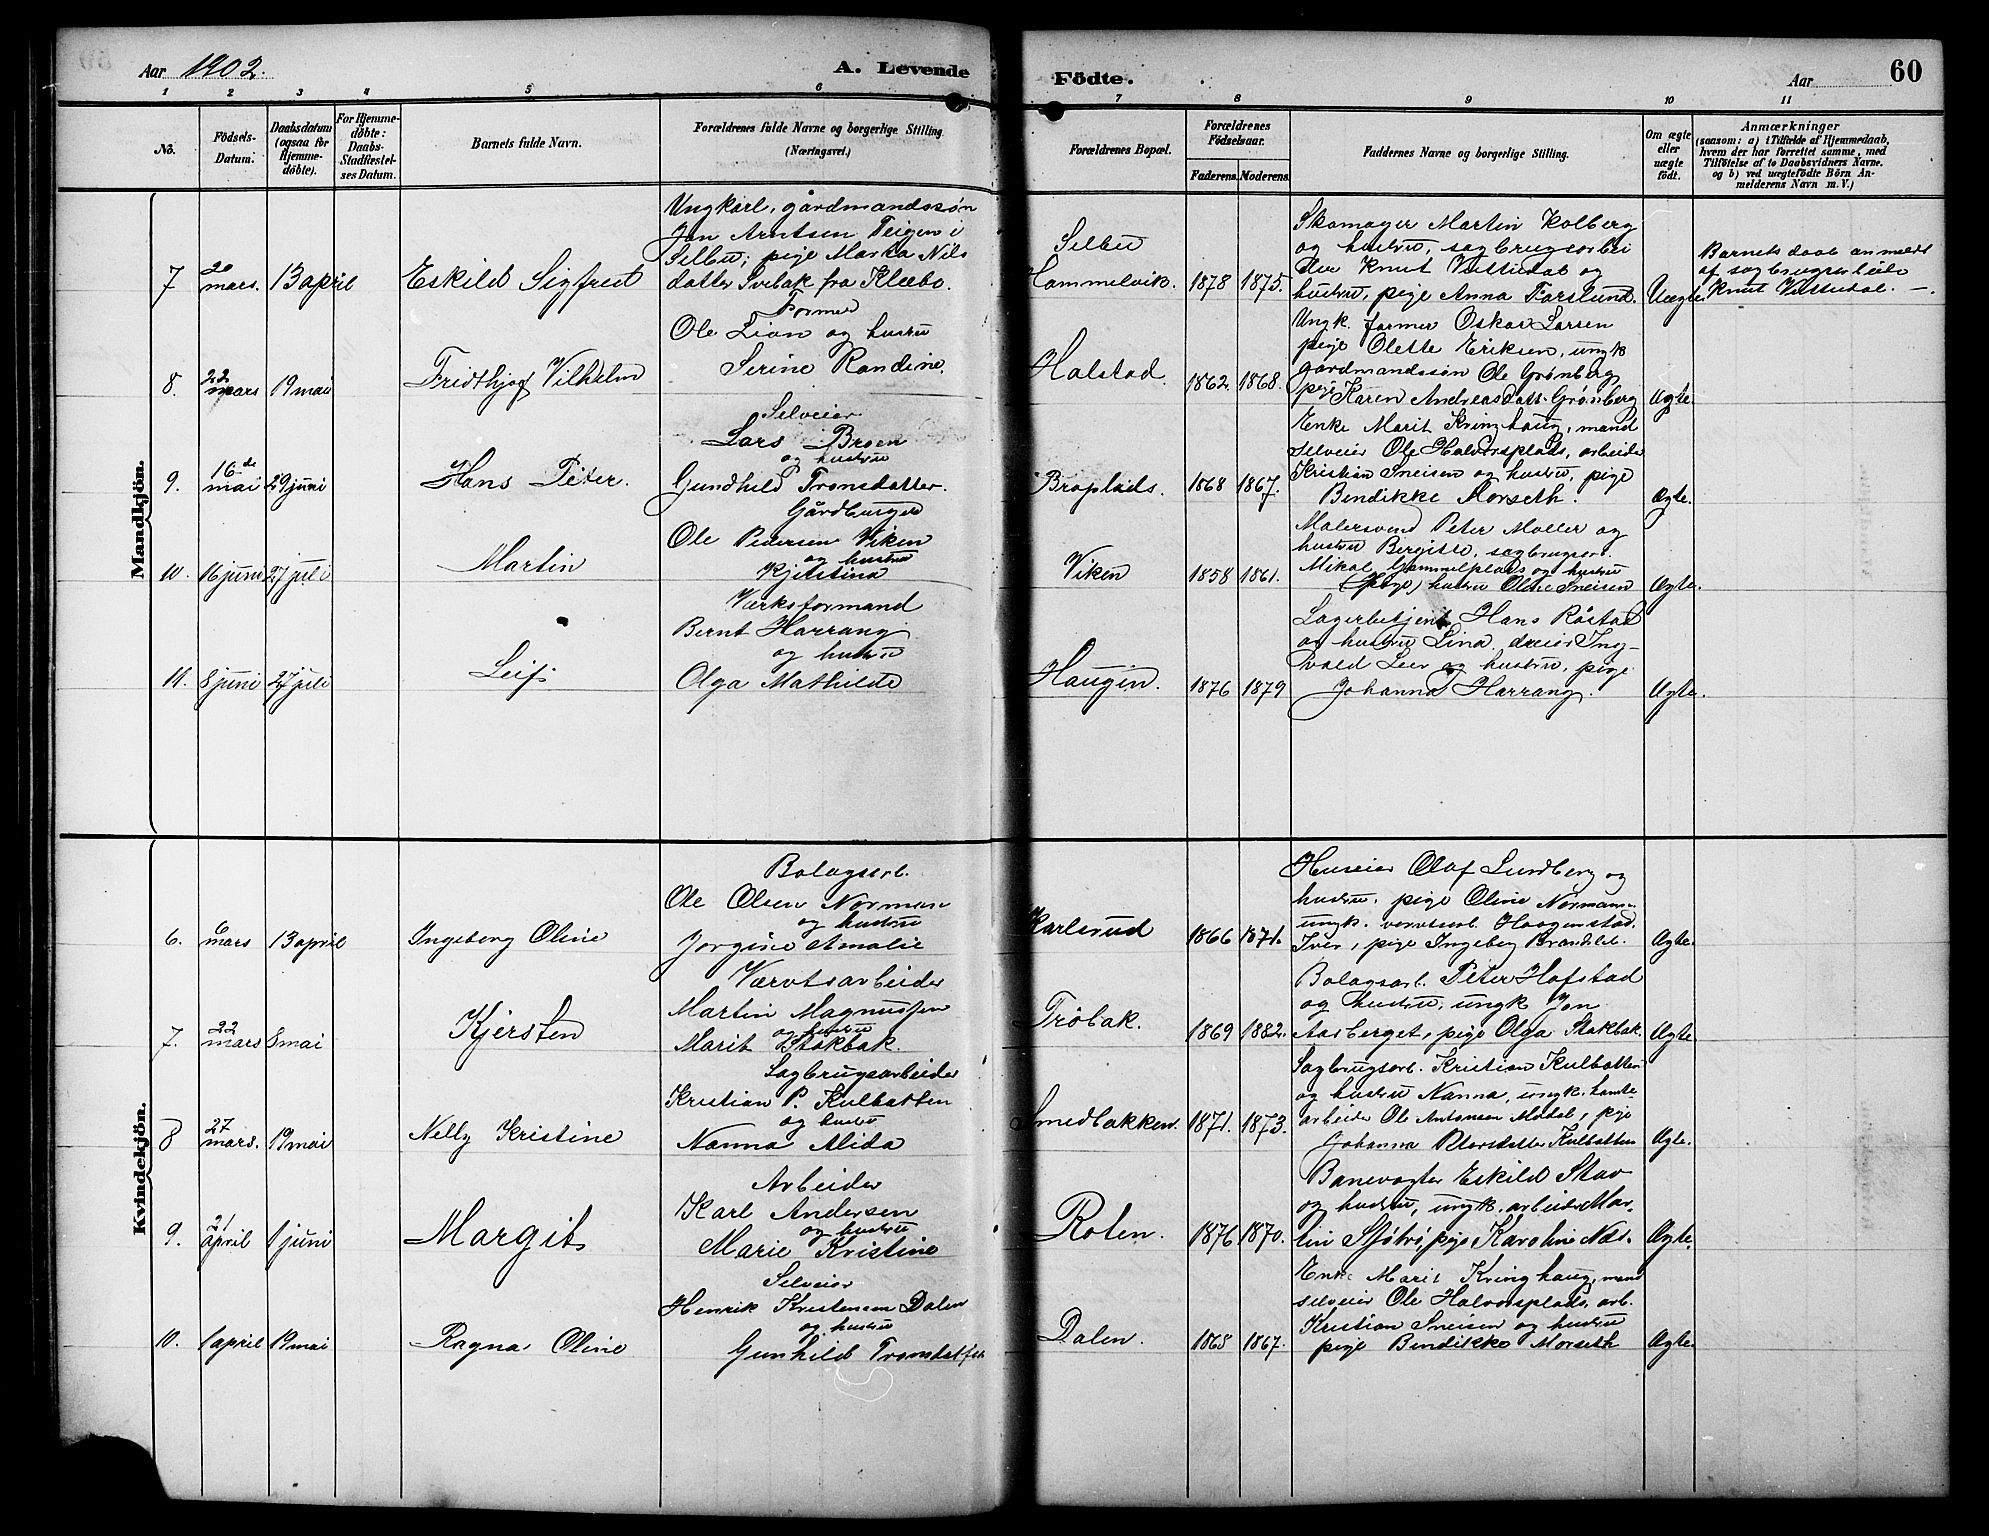 Aar 1902.
A. Levende Födte.
Aar
60
1 2 3 4 5 6 7 8 9 10 11
No.
Födsels-Datum.
Daabsdatum (ogsaa for Hjemme-døbte).
For Hjemme-døbte: Daabs-Stadfæstel-ses Datum.
Barnets fulde Navn.
Forældrenes fulde Navne og borgerlige Stilling. (Næringsvei.)
Forældrenes Bopæl.
Forældrenes Födselsaar.
Faderens. Moderens.
Faddernes Navne og borgerlige Stilling.
Om ægte eller uægte født.
Anmærkninger
(saasom: a) i Tilfælde af Hjemmedaab, hvem der har forrettet samme, med Tilföielse af to Daabsvidners Navne. og b) ved uægtefödte Börn An-melderens Navn m. V.)
Mandkjön.
7 20 mars. 13 april Eskild Sigfred
Ungkarl, gårdmandssøn
Jon Arntsen Teigen i
Selbu; pige Marka Nils
datter Svebak fra Klæbo.
Selbu
Hommelvik. 1878 1875.
Skomager Martin Kolberg
og hustru, sagbrugsarbei
der Knut Vuttudal og
hustru, pige Anna Forslund. Uægte.
Barnets daab anmeldt
af sagbrugsarbeide
Knut Vuttudal. —.
8. 22 mars 19 mai Fridthjof Vilhelm
Former
Ole Lian og hustru
Serine Randine.
Halstad. 1862. 1868.
Ungk. former Oskar Larsen
pige Olette Eriksen, ungk
gårdmandssøn Ole Grønberg,
pige Karen Andreasdatt. Grønberg Ægte.
9. 16de mai 29 juni Hans Peter.
Selveier
Lars Broen
og hustru
Gundhild Tronsdatter.
Broplads. 1868 1867.
Enke Marit Kringhaug, mand
selveier Ole Halvorsplads, arbeider
Kristian Sneisen og hustru, pige
Bendikke Morseth. Ægte.
10. 16 juni 27 juli Martin
Gårdbruger
Ole Pedersen Viken
og hustru
Kjerstina
Viken 1858 1861.
Malersvend Peter Moller og
hustru Bergitte, sagbrugsarb.
Mikal Gammelplads og hustru
(pige) hustru Oline Sneisen Ægte.
11. 8 juni 27 juli Leif
Værksformand
Bernt Harrang
og hustru
Olga Mathilde
Haugen. 1876 1879
Lagerbetjent Hans Råstad
og hustru Lina, dreier Ing-
vald Leer og hustru, pige
Johanna Harrang. Ægte.
Kvindekjön.
6. 6 mars 13 april Ingeborg Oline
Bolagsarb.
Ole Olsen Norman
og hustru
Jorgine Amalie
Karlsrud 1866 1871.
Huseier Olaf Lundberg og
hustru, pige Oline Norman,
ungk. værvtsarb. Haagen Stad.
Iver, pige Ingeborg Brandslet. Ægte.
7. 22 mars 8 mai Kjersten
Værvtsarbeider
Martin Magnussen
og hustru
Marit Stokbak.
Trøbak. 1869 1882.
Bolagsarb. Peter Hofstad
og hustru, ungk Jon
Aasberget, pige Olga Stokbak. Ægte.
8 27 mars. 19 mai Nelly Kristine
Sagbrugsarbeider
Kristian P. Kulbotten
og hustru
Nanna Alida
Smedbakken. 1871. 1873.
Sagbrugsarb. Kristian Kulbotten
og hustru Nanna, ungk. tomte
arbeider Ole Antonsen Modal, pige
Johanna Petersdatter Kulbotten Ægte.
9. 21 april 1 juni Margit
Arbeider
Karl Andersen
og hustru
Marie Kristine
Roten. 1876 1870.
Banevogter Eskild Stav
og hustru, ungk. arbeider Mar-
tin Sjøbrø, pige Karoline Næs. Ægte.
10. 1 april 19 mai Ragna Oline
Selveier
Henrik Kristensen Dalen
og hustru
Gunhild Tronsdatter
Dalen. 1868 1867.
Enke Marit Kringhaug, mand
selveier Ole Halvorsplads, arb.
Kristian Sneisen og hustru
pige Bendikke Morseth Ægte.